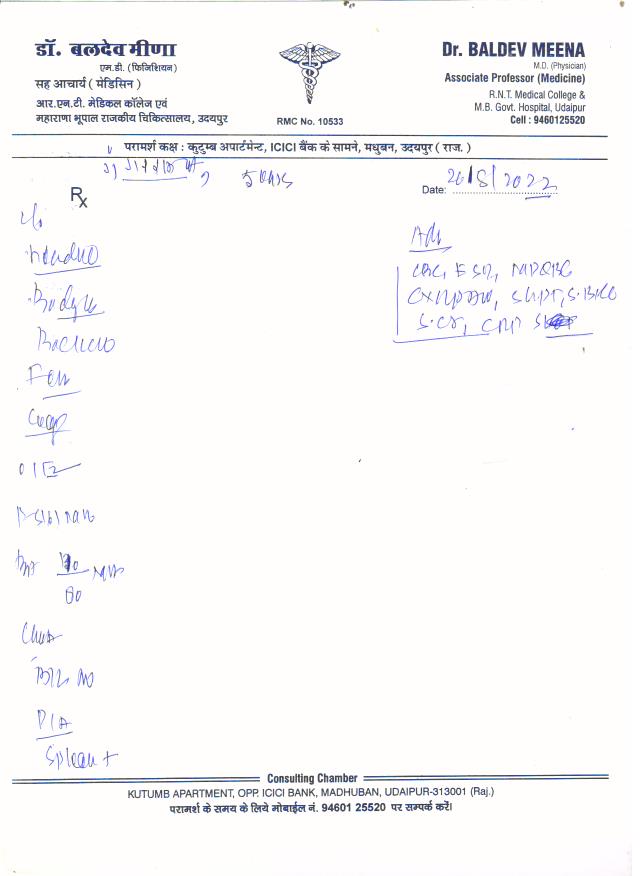 डॉ. बलदेव मीणा
एम.डी. (फिजिशियन)
सह आचार्य ( मेडिसिन )
आर.एन.टी. मेडिकल कॉलेज एवं
महाराणा भूपाल राजकीय चिकित्सालय, उदयपुर
RMC No. 10533
Dr. BALDEV MEENA
M.D. (Physician)
Associate Professor (Medicine)
R.N.T. Medical College &
M.B. Govt. Hospital, Udaipur
Cell : 9460125520
परामर्श कक्ष : कुटुम्ब अपार्टमेन्ट, ICICI बैंक के सामने, मधुबन, उदयपुर ( राज. )
Rx
Date: 26/5/2022
Adv
CBC, ESR, MPQBC
S.Cr, CRP
C/o
Headache
Bodyache
Fever
Cough
O/E
80
Chest
P/A
Spleen +
Consulting Chamber
KUTUMB APARTMENT, OPP. ICICI BANK, MADHUBAN, UDAIPUR-313001 (Raj.)
परामर्श के समय के लिये मोबाईल नं. 94601 25520 पर सम्पर्क करें।